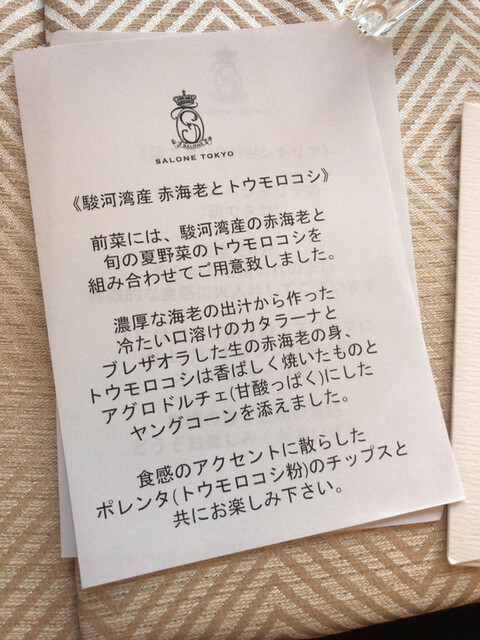 SALONE
SALONE TOKYO
《駿河湾産 赤海老とトウモロコシ》
前菜には、駿河湾産の赤海老と
旬の夏野菜のトウモロコシを
組み合わせてご用意致しました。
濃厚な海老の出汁から作った
冷たい口溶けのカタラーナと
ブレザオラした生の赤海老の身、
トウモロコシは香ばしく焼いたものと
アグロドルチェ(甘酸っぱく)にした
ヤングコーンを添えました。
食感のアクセントに散らした
ポレンタ(トウモロコシ粉)のチップスと
共にお楽しみ下さい。